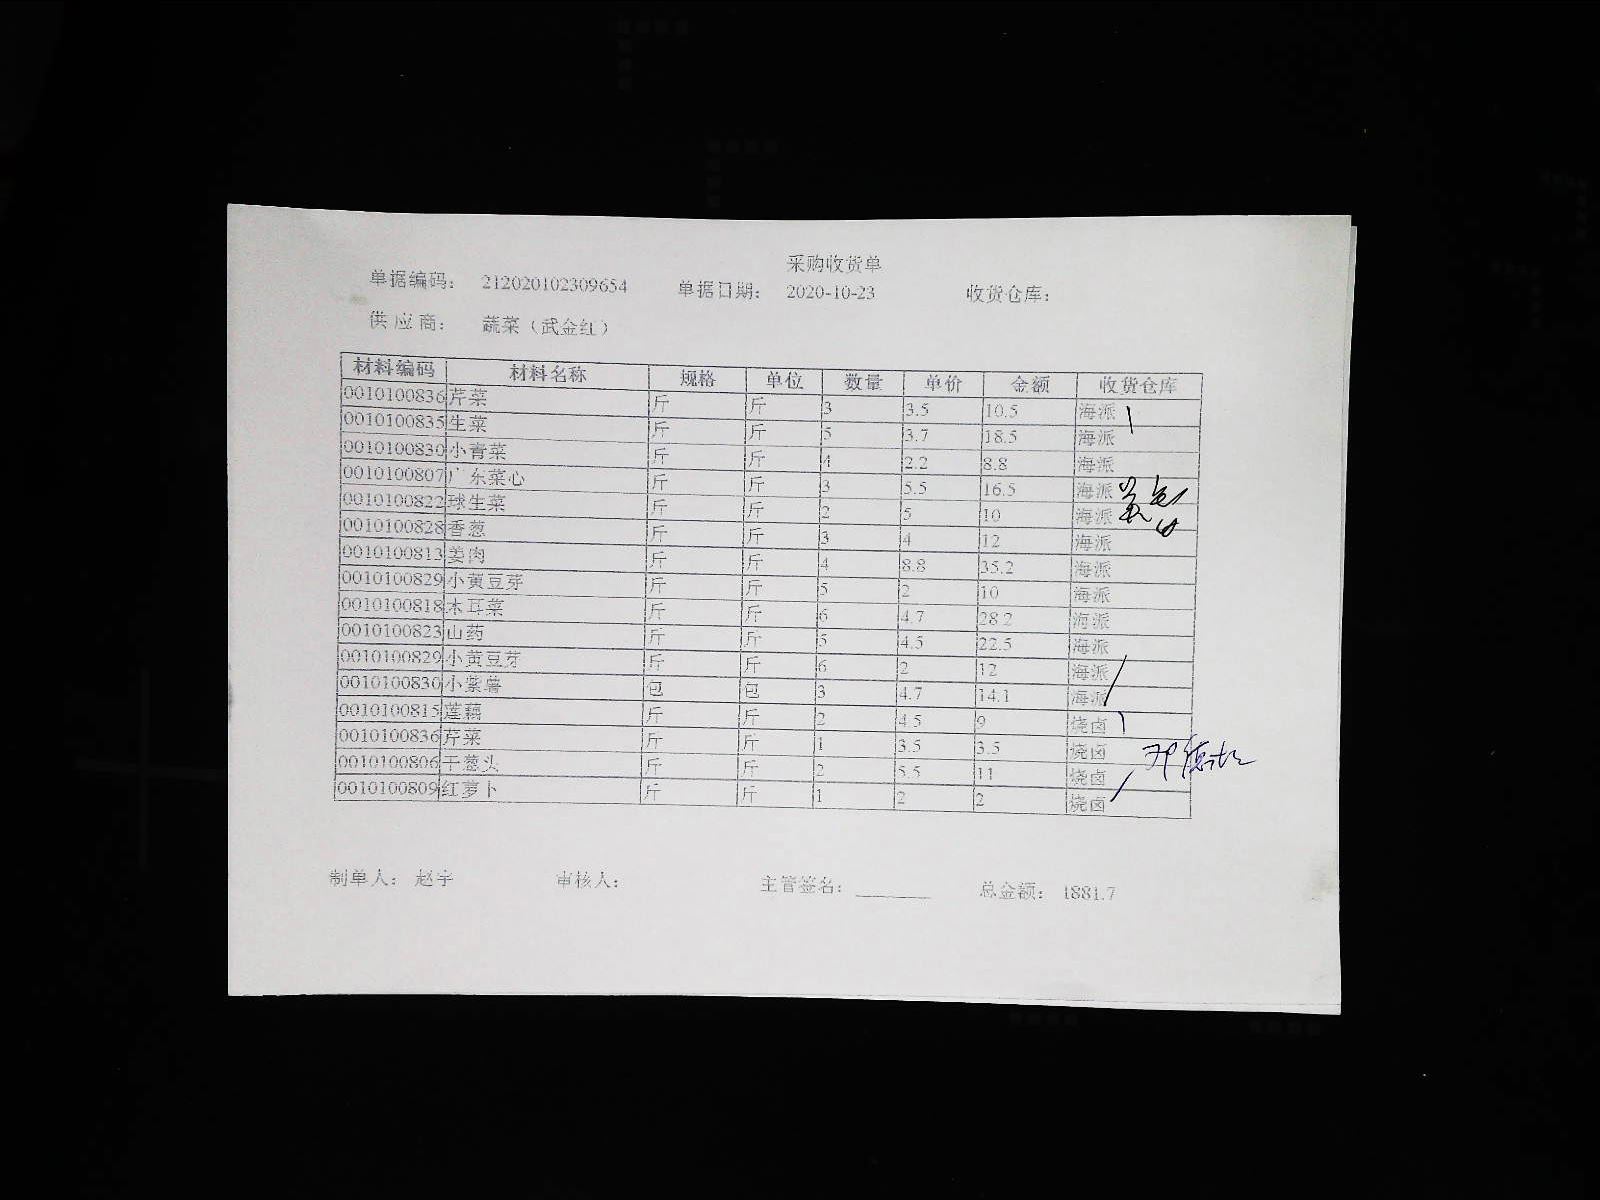 采购收货单
单据编码： 212020102309654 单据日期： 2020-10-23 收货仓库：
供 应 商： 蔬菜（武金红）
材料编码 材料名称 规格 单位 数量 单价 金额 收货仓库
0010100836 芹菜 斤 斤 3 3.5 10.5 海派
0010100835 生菜 斤 斤 5 3.7 18.5 海派
0010100830 小青菜 斤 斤 4 2.2 8.8 海派
0010100807 广东菜心 斤 斤 3 5.5 16.5 海派
0010100822 球生菜 斤 斤 2 5 10 海派
0010100828 香葱 斤 斤 3 4 12 海派
0010100813 姜肉 斤 斤 4 8.8 35.2 海派
0010100829 小黄豆芽 斤 斤 5 2 10 海派
0010100818 木耳菜 斤 斤 6 4.7 28.2 海派
0010100823 山药 斤 斤 5 4.5 22.5 海派
0010100829 小黄豆芽 斤 斤 6 2 12 海派
0010100830 小紫薯 包 包 3 4.7 14.1 海派
0010100815 莲藕 斤 斤 2 4.5 9 烧卤
0010100836 芹菜 斤 斤 1 3.5 3.5 烧卤
0010100806 干葱头 斤 斤 2 5.5 11 烧卤
0010100809 红萝卜 斤 斤 1 2 2 烧卤
制单人： 赵宇 审核人： 主管签名： 总金额： 1881.7